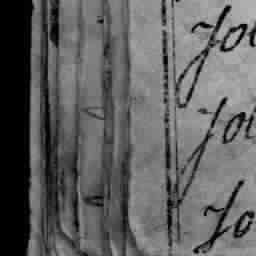 Jo
Jo
Jo